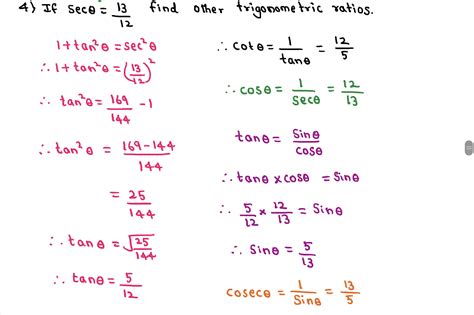 4) If secθ = 13/12 find other trigonometric ratios.
1 + tan²θ = sec²θ
∴ 1 + tan²θ = (13/12)²
∴ tan²θ = 169/144 - 1
∴ tan²θ = 169-144/144
= 25/144
∴ tanθ = √25/144
∴ tanθ = 5/12
∴ cotθ = 1/tanθ = 12/5
∴ cosθ = 1/secθ = 12/13
tanθ = Sinθ/cosθ
∴ tanθ × cosθ = Sinθ
∴ 5/12 × 12/13 = Sinθ
∴ Sinθ = 5/13
cosecθ = 1/Sinθ = 13/5